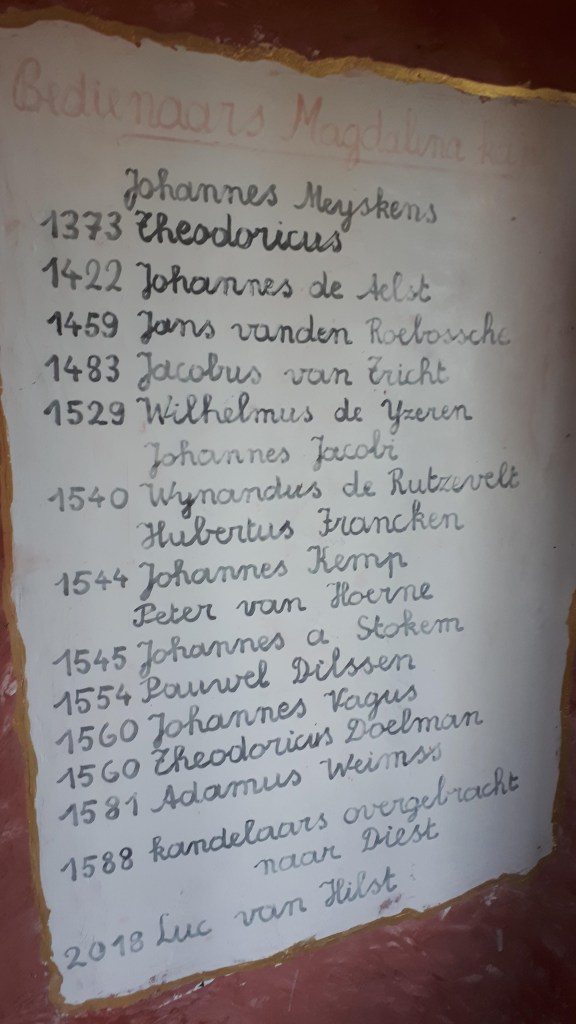 Bedienaars Magdalena
Johannes Meyskens
1373 Theodoricus
1422 Johannes de Aelst
1459 Jans vanden Roebossche
1483 Jacobus van Tricht
1529 Wilhelmus de Yzeren
Johannes Jacobi
1540 Wynandus de Rutzevelt
Hubertus Francken
1544 Johannes Kemp
Peter van Hoerne
1545 Johannes a Stokem
1554 Pauwel Dilssen
1560 Johannes Vagus
1560 Theodoricus Doelman
1581 Adamus Weimss
1588 kandelaars overgebracht
naar Diest
2018 Luc van Hilst